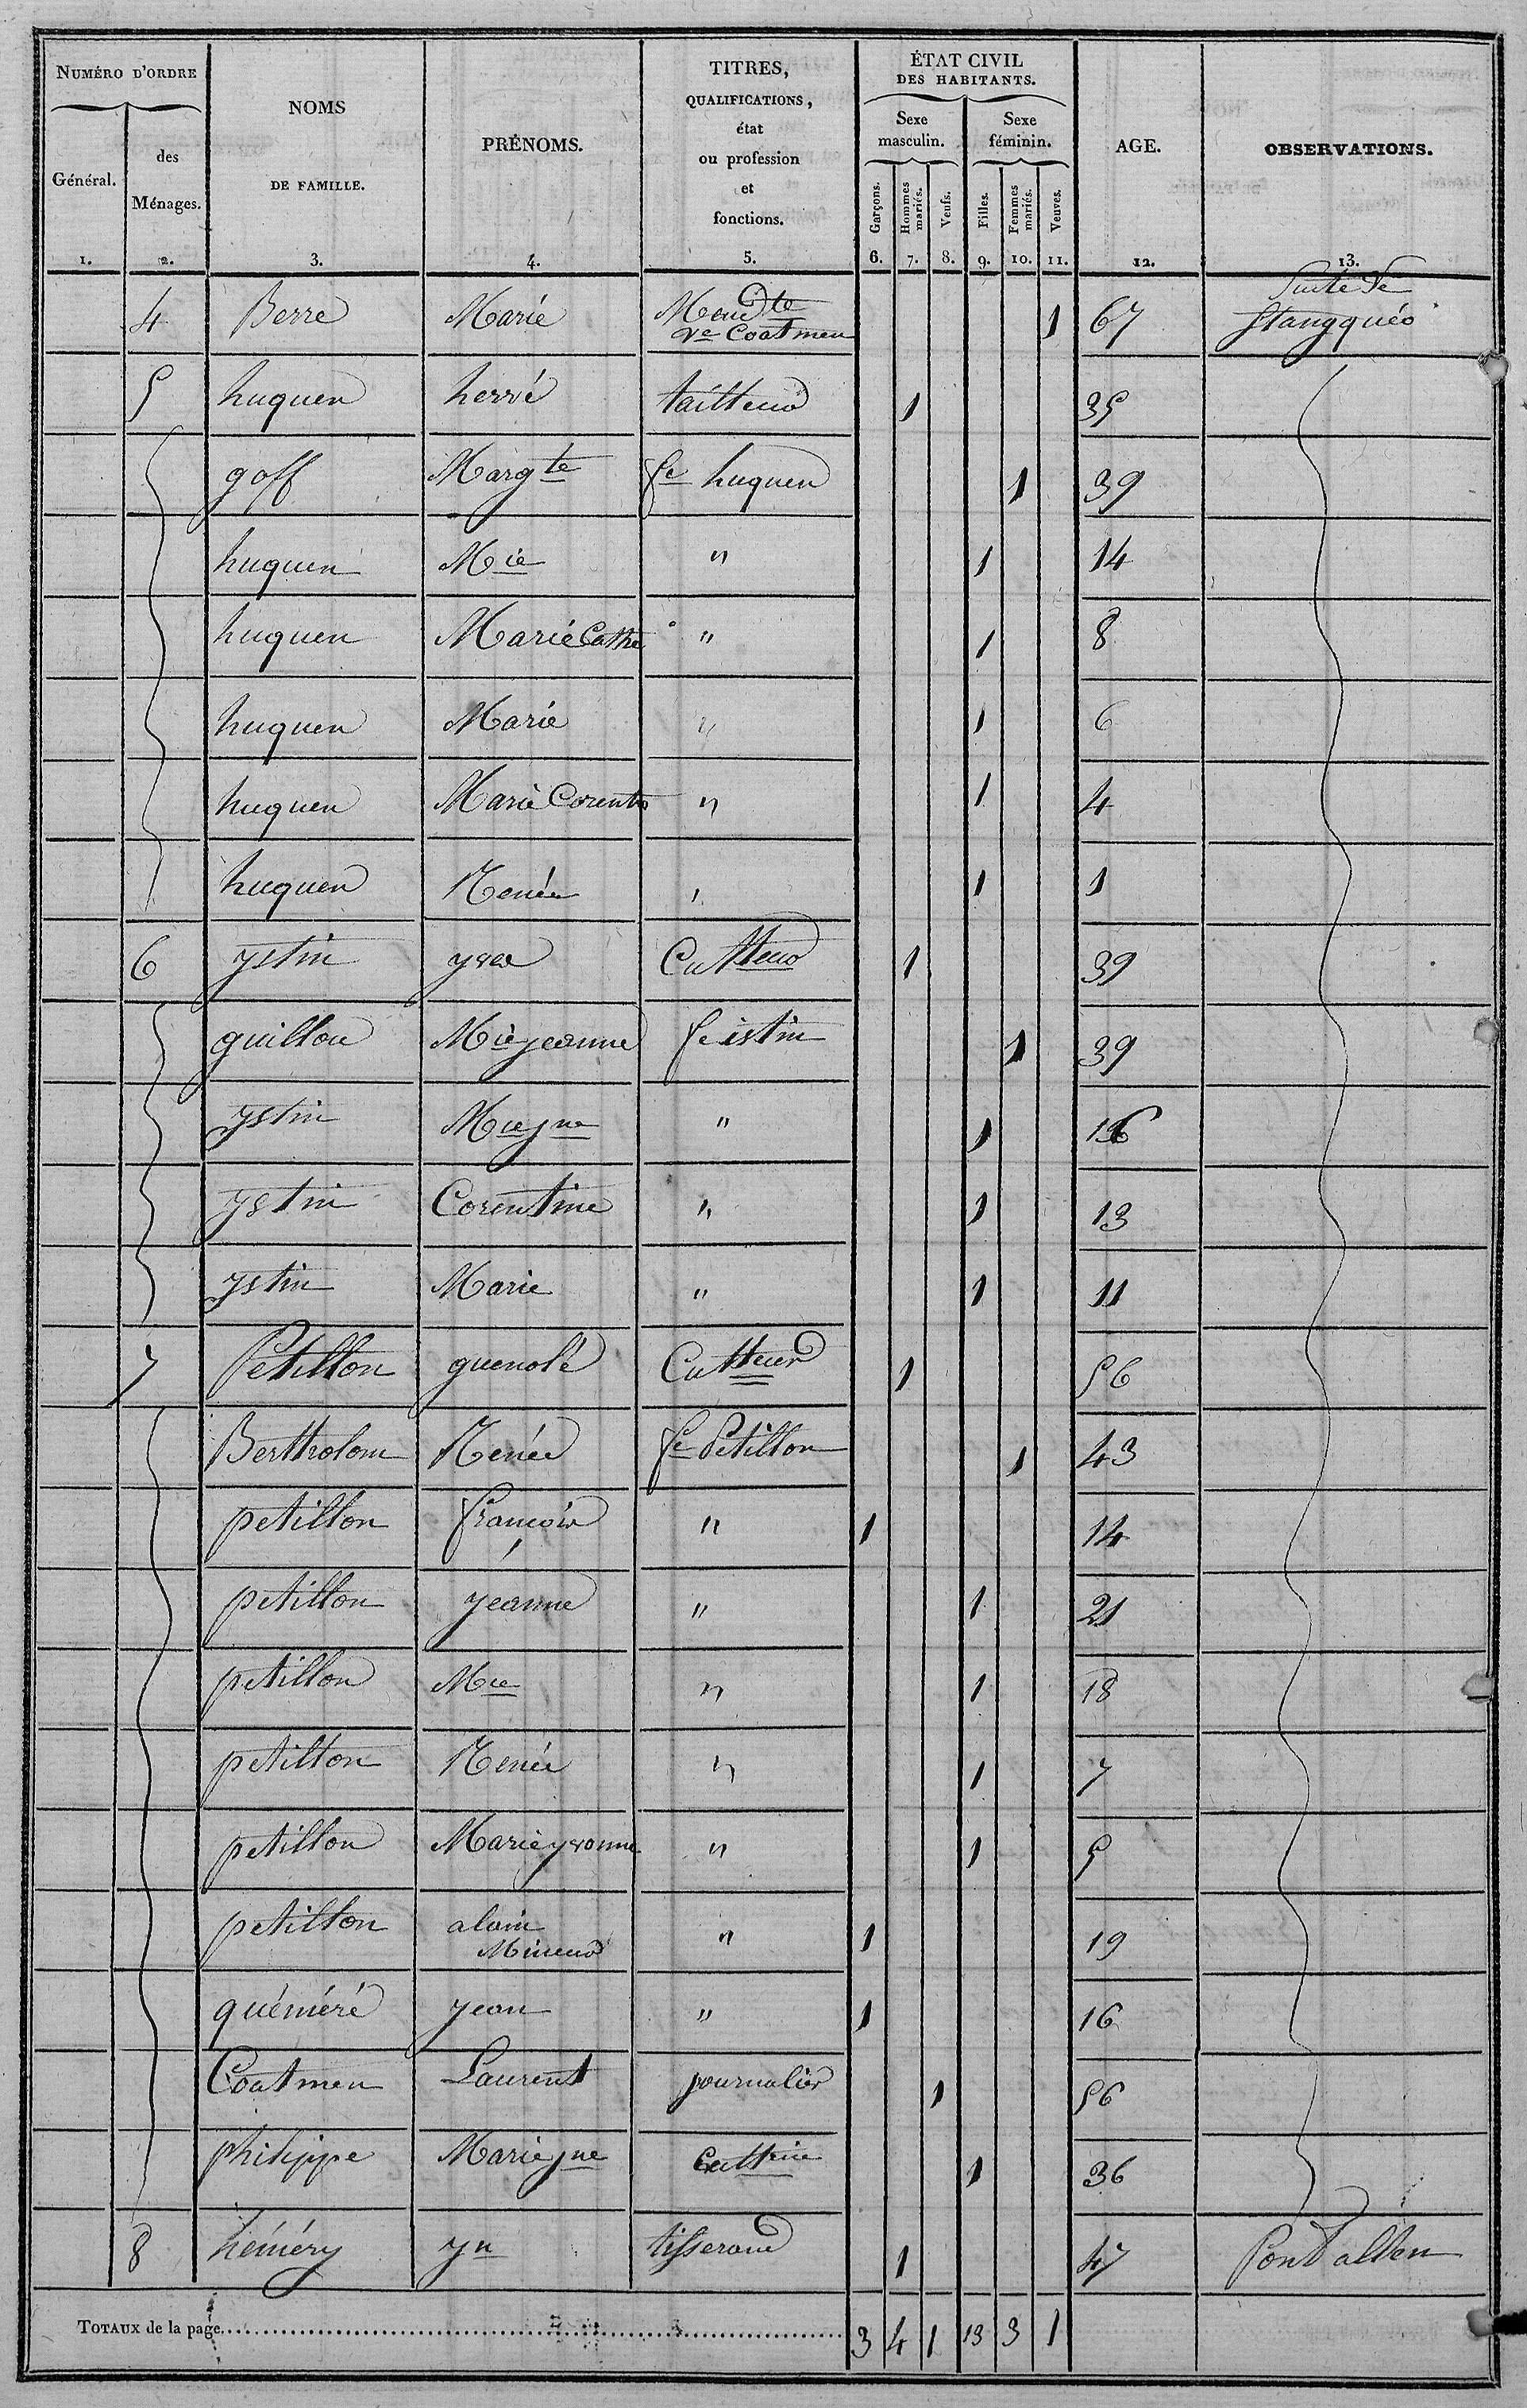 NUMÉRO D'ORDRE
Général.
des Ménages.
NOMS
DE FAMILLE.
PRÉNOMS.
TITRES,
QUALIFICATIONS,
état
ou profession
et
fonctions.
ÉTAT CIVIL
DES HABITANTS.
Sexe masculin.
Sexe féminin.
Garçons.
Hommes mariés.
Veufs.
Filles.
Femmes mariés.
Veuves.
AGE.
OBSERVATIONS.
1. 2. 3. 4. 5. 6. 7. 8. 9. 10. 11. 12. 13.
4 Berre Marie Mend te 1 67 Suite de
ve Coatmen Stangquéo
5 huguen hervé tailleur 1 35
goff Marg te fe huguen 1 39
huguen Mie " 1 14
huguen Marie Cathe " 1 8
huguen Marie " 1 6
huguen Marie Corent " 1 4
huguen Renée " 1 1
6 ystin yves Cultteur 1 39
guillou Mie jeanne fe istin 1 39
ystin Mie jne " 1 16
ystin Corentine " 1 13
ystin Marie " 1 11
7 Petillon guenolé Cultteur 1 56
Bertholom Renée fe Petillon 1 43
petillon françois " 1 14
petillon jeanne " 1 21
petillon Mie " 1 18
petillon Renée " 1 7
petillon Marie yvonne " 1 5
petillon alain " 1 19
Mineur
quéméré jean " 1 16
Coatmen Laurent journalier 1 56
philippe Marie jne Cultrice 1 36
8 héméry yn tisserand 1 47 Pont allen
TOTAUX de la page 3 4 1 13 3 1